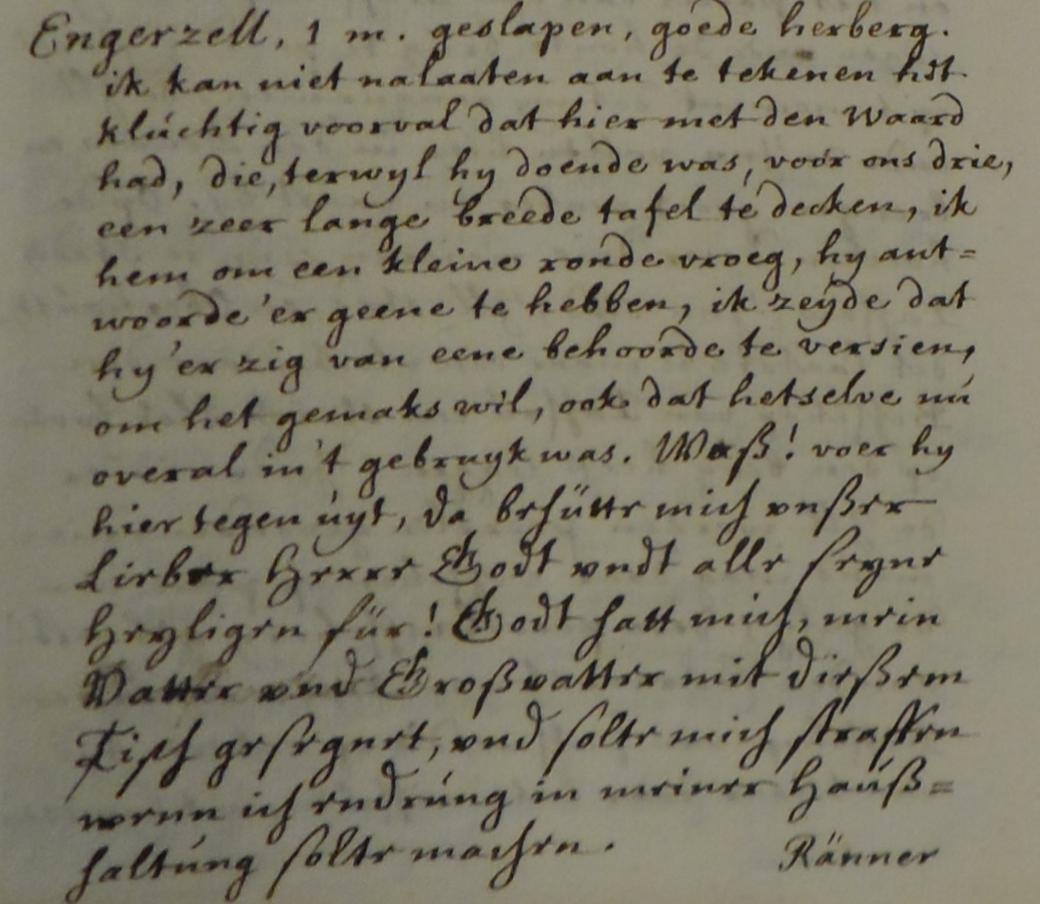 Engerzell, 1 m. geslapen, goede herberg.
ik kan niet nalaaten aan te tekenen het
kluchtig voorval dat hier met den Waard
had, die, terwyl hy doende was, voor ons drie,
een zeer lange breede tafel te decken, ik
hem om een kleine ronde vroeg, hy ant=
woorde 'er geene te hebben, ik zeyde dat
hy 'er zig van eene behoorde te versien,
om het gemaks wil, ook dat hetselve nu
overal in 't gebruyk was. Waß! voer hy
hier tegen uyt, da behütte mich vnßer
Lieber Herre Godt vndt alle seyne
Heyligen für! Godt hatt mich, mein
Vatter vnd Großvatter mit dießem
Tisch gesegnet, vnd solte mich straffen
wenn ich endrung in meiner Hauß=
haltung solte machen.
Ränner